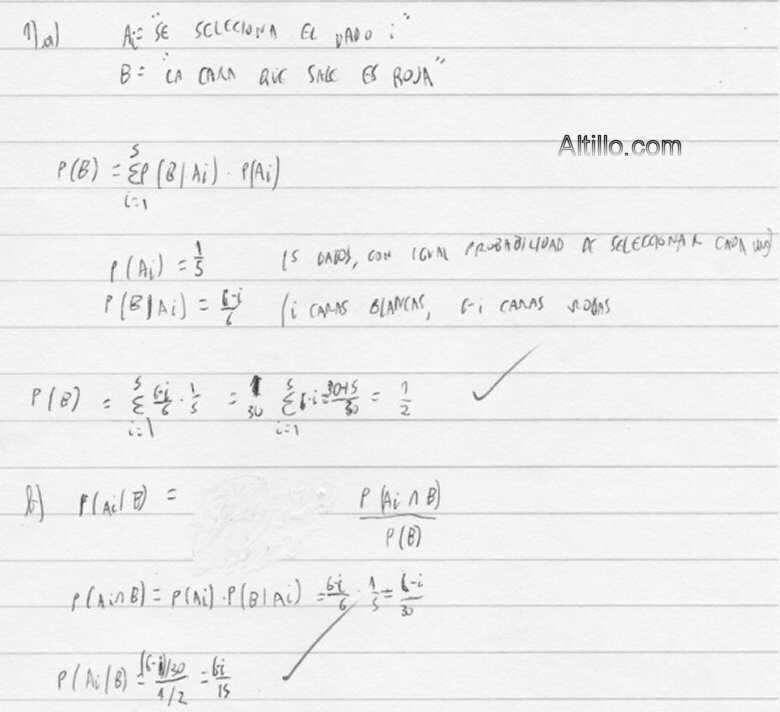 1).a) Ai= "SE SELECIONA EL DADO i"
B= "LA CARA QUE SALE ES ROJA"
Altillo.com
P(B) = 5 Σ i=1 P(B|Ai) · P(Ai)
P(Ai) = 1/5 (5 DADOS, CON IGUAL PROBABILIDAD DE SELECCIONAR CADA UNO)
P(B|Ai) = 6-i/6 (i CARAS BLANCAS, 6-i CARAS ROJAS
P(B) = 5 Σ i=1 6-i/6 · 1/5 = 1/30 5 Σ i=1 6-i = /30 = 1/2
b) P(Ai/B) = P(Ai ∩ B)/P(B)
P(Ai∩B) = P(Ai) · P(B|Ai) = 6-i/6 · 1/5 = 6-i/30
P(Ai/B) = (6-i)/30/1/2 = 6-i/15